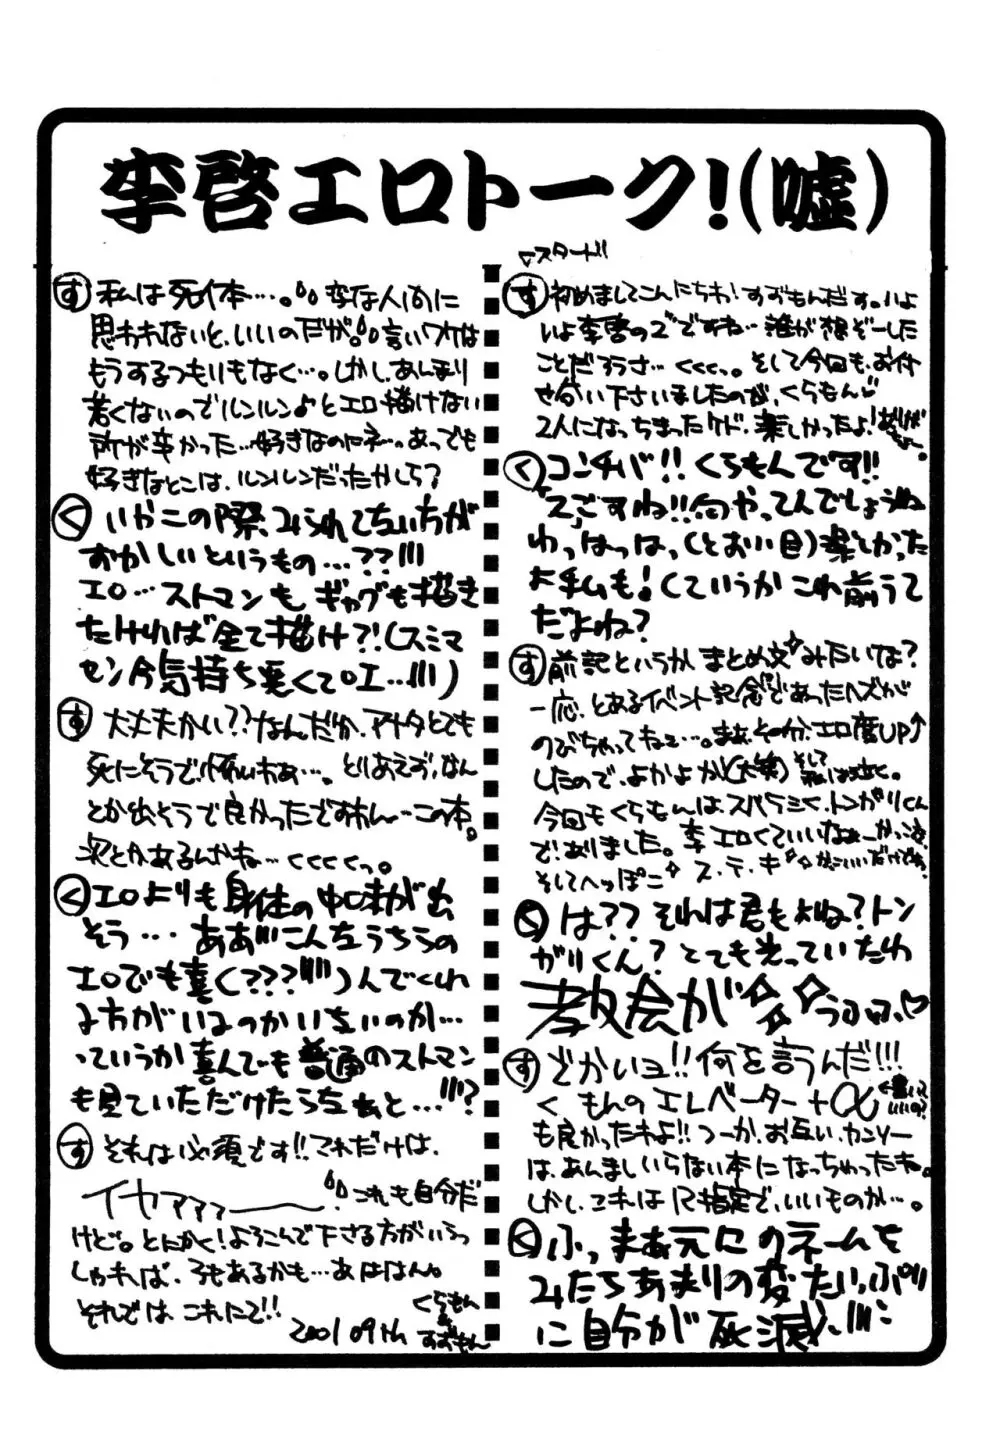 李啓エロトーク!(嘘)
▽スタート!!
す 初めましてこんにちわ!すずもんだす。いよ
いよ李啓の2ですね…誰が想ぞーした
ことだろうさ…くくくっ。そして今回も、お付
せ合い下さいましたのが、くらもん♡
2人になっちまったケド、楽しかったよ!
く コンチバ!!くらもんです!!
「2」ごすね!!何やってんでしょうね
わっはっはっ(とおい目)楽しかった
よ私も!(ていうかこれ前うて
だよね?
す 前記というかまとめ文みたいな?
一応、とあるイベント記念であったハズが
のびちゃってねェ…。まぁ、その分、エロ度UP↑
したので、よかよか!(大笑)そして私は泣く。
今回もくらもんは、スバラミく、トンガリくん
で!ありました。李エロくていいなぁーかっこ良
そしてへっぽこ ス・テ・キ
く は??それは君もよね?トン
ガリくん?とても光っていたわ
教会が うふふ♡
す どかいョ!!何を言うんだ!!!
くらもんのエレベーター+α
も良かったわよ!!つーか、お互い、カンソー
は、あんましいらない本になっちゃったね。
しかし、これは12指定で、いいものか…。
く ふっ まぁ元にのネームを
みたらあまりの変たいっぷり
に自分が死滅、!!!
す 私は死体…。変な人間に
思われないと、いいのだが。言いワケは
もうするつもりもなく…。しかし、あんまり
若くないのでルンルン♪とエロ描けない
所が辛かった…好きなのにネ…。あっでも
好きなとこは、ルンルンだったかしら?
く いやこの際、みられてないちが
おかしいというもの…??!!!
エロ…ストマンも、ギャグも描き
たければ全て描け?!(スミマ
セン今気持ち悪くて。エ…!!!)
す 大丈夫かい??なんだか、アナタとても
死にそうで怖いわぁ…。とりあえず、なん
とか出そうで良かったですわん…この本。
次とかあるんかね…くくくくっ。
く エロよりも身体の中味が出
そう… ああ!!!こんなうちらの
エロでも喜(???!!!!)んでくれ
る方がいるのかいないのか…
っていうか喜んでも普通のストマン
も見ていただけたらなぁと…!!!?
す それは必須です!!これだけは、
イヤァァァーー これも自分だ
けど。とにかく!よろこんで下さる方がいらっ
しゃれば、3もあるかも…あははん。
それでは これにて!!
2001 09th
くらもん
&
すずもん